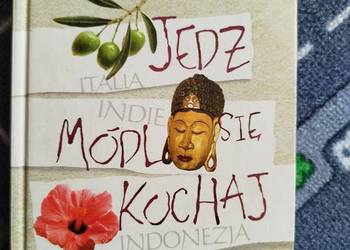 JEDZ
ITALIA
INDIE
MÓDL SIĘ
KOCHAJ
INDONEZJA